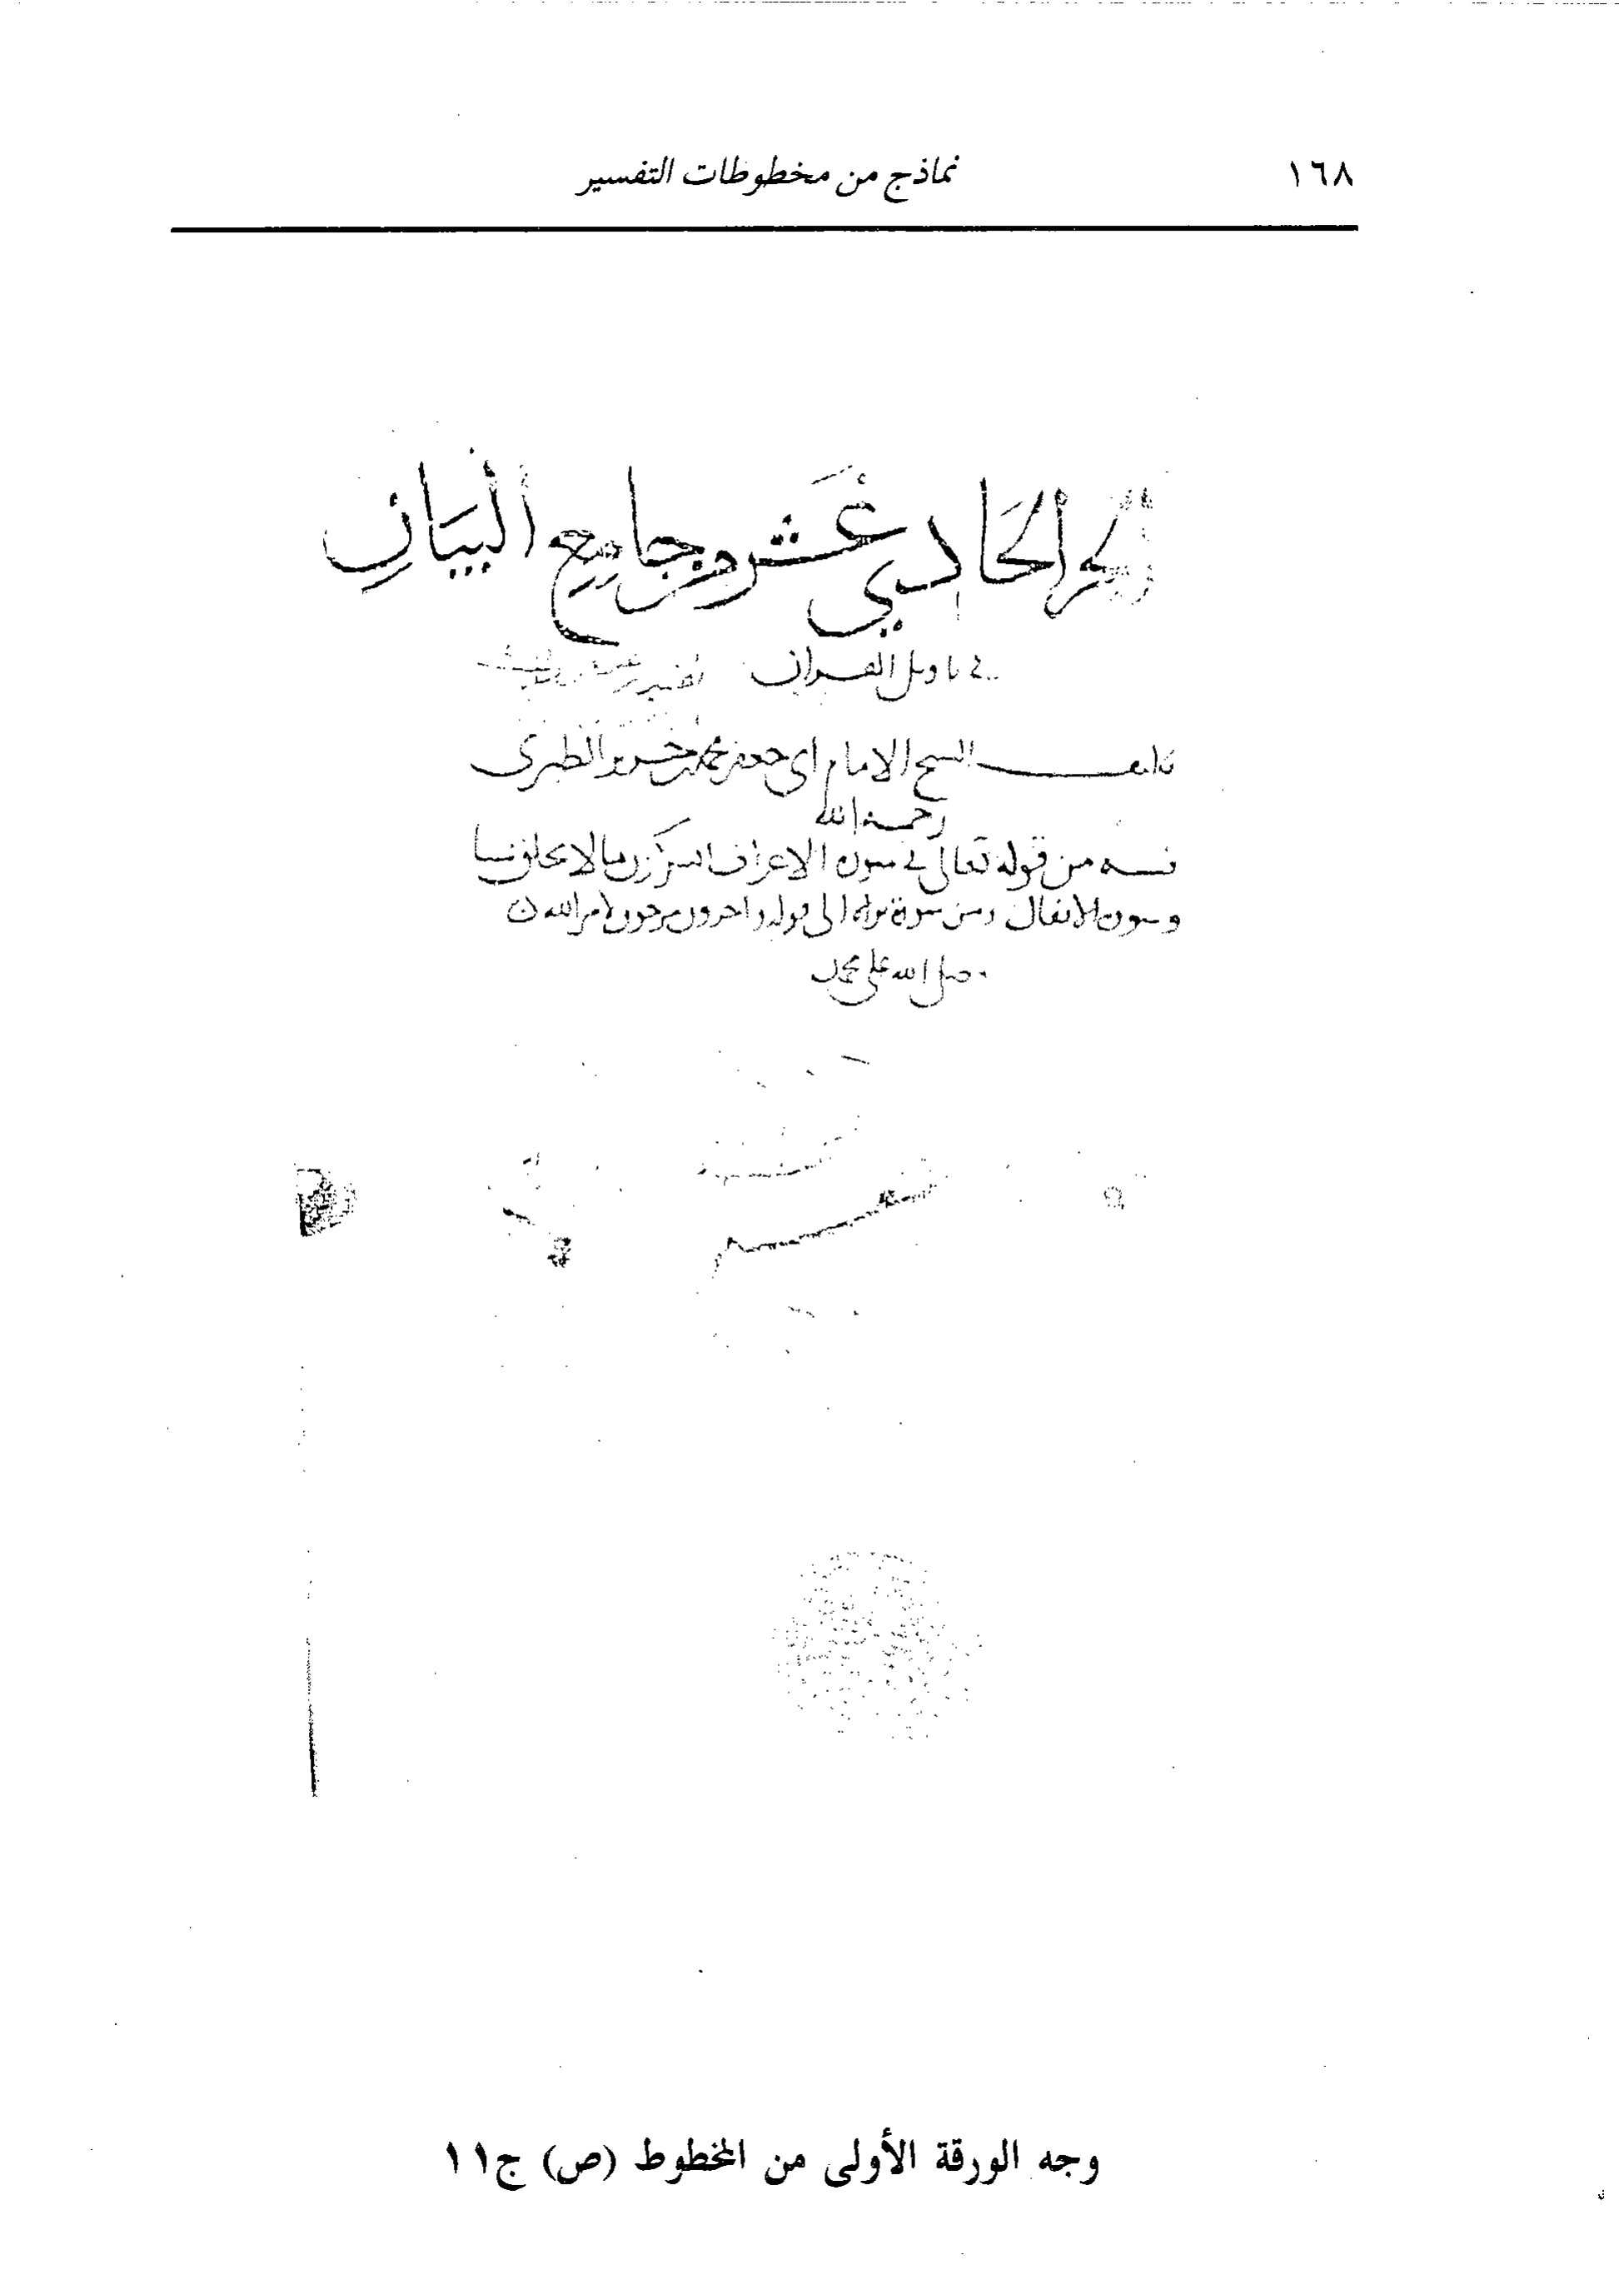 ١٦٨
نماذج من مخطوطات التفسير
الجزء الحادي عشر من جامع البيان
في تاويل القران
تاليف الشيخ الامام ابي جعفر محمد بن جرير الطبري
رحمه الله
فيه من قوله تعالى في سورة الاعراف ايشركون ما لا يخلق شيا
وسورة الانفال ومن سورة براه الى قوله واخرون مرجون لامر الله
وصلى الله على محمد
وجه الورقة الأولى من المخطوط (ص) ج١١